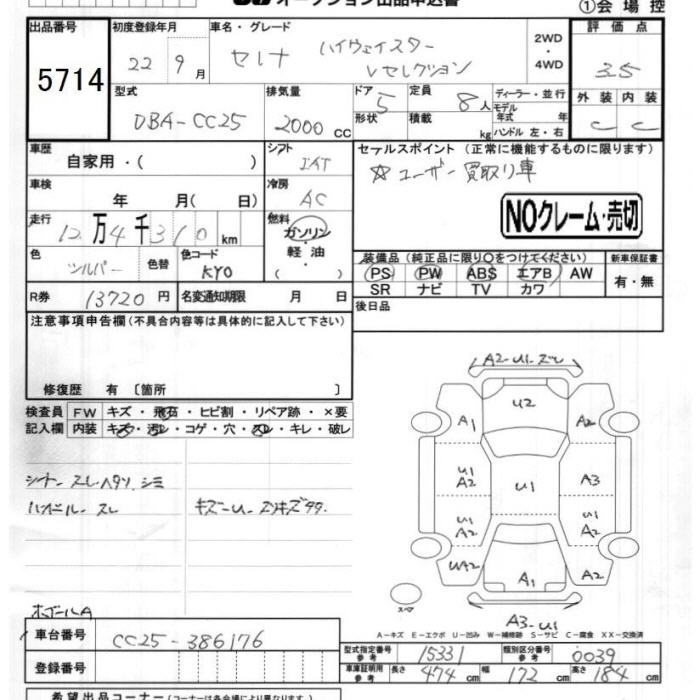 オークション出品申込書
①会場控
出品番号
5714
初度登録年月
22 9月
車名・グレード
セレナ ハイウェイスター
Vセレクション
2WD
・
4WD
評価点
3.5
外装 内装
C C
型式
DBA-CC25
排気量
2000 cc
ドア 5
形状
定員 8人
積載 kg
ディーラー・並行
モデル年式 年
ハンドル 左・右
車歴
自家用・( )
シフト
IAT
車検
年 月( 日)
冷房
AC
走行
12万4千310km
燃料
ガソリン
・
軽油
色
シルバー
色替
色コード
KYO
R券 13720円
名変通知期限 月 日
セールスポイント (正常に機能するものに限ります)
☆ユーザー買取り車
NOクレーム・売切
装備品 (純正品に限り○をつけてください)
PS PW ABS エアB AW
SR ナビ TV カワ
新車保証書
有・無
後日品
注意事項申告欄 (不具合内容等は具体的に記入して下さい)
修復歴 有 〔箇所 〕
検査員記入欄
FW キズ・飛石・ヒビ割・リペア跡・×要
内装 キズ・汚レ・コゲ・穴・スレ・キレ・破レ
シート スレ ヘタリ シミ
ハンドル スレ
キズ-U-
A2-U1-ズレ
U2
A1
A2
U1
A2
U1
A3
U1
A2
U1
A2
UA2
A1
A2
A3-U1
スペア
A-キズ E-エクボ U-凹み W-補修跡 S-サビ C-腐食 XX-交換済
ホイールA
車台番号
CC25-386176
登録番号
型式指定番号 参考 15331
類別区分番号 参考 0039
車庫証明用 参考 長さ 474cm 幅 172cm 高さ 184cm
希望出品コーナー (コーナーは各会場により異なります。)